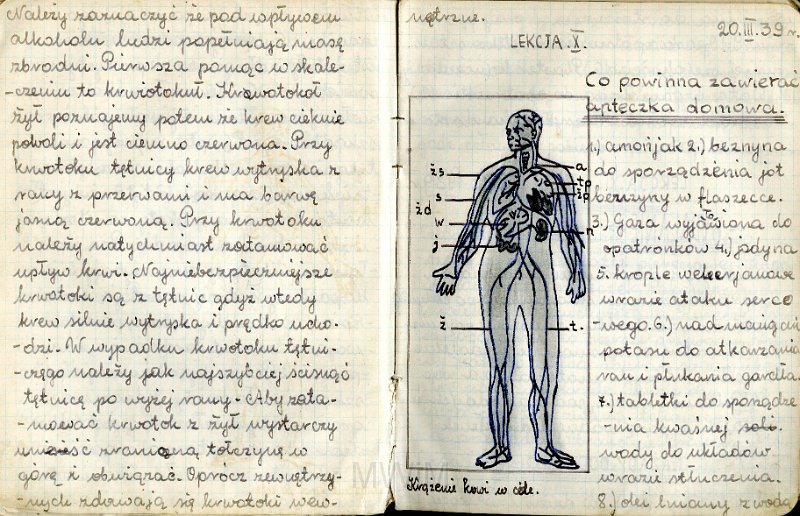 Należy zaznaczyć że pod wpływem
alkoholu ludzi popełniają masę
zbrodni. Pierwsza pomoc w skale-
-czeniu to krwiotokuł. Krwotokoł
żył poznajemy potem że krew cieknie
powoli i jest ciemno czerwona. Przy
krwotoku tętnicy krew wytryska z
rany z przerwami i ma barwę
jasną czerwoną. Przy krwotoku
należy natychmiast zatamować
upływ krwi. Najniebezpieczniejsze
krwotoki są z tętnic gdyż wtedy
krew silnie wytryska i prędko ucho-
-dzi. W wypadku krwotoku tętni-
-czego należy jak najszybciej ścisnąć
tętnicę po wyżej rany. Aby zata-
-mować krwotok z żył wystarczy
unieść zranioną kończynę w
górę i obwiązać. Oprócz zewnętrzy-
-nych zdarzają się krwotoki wew-
nętrzne.
20.III.39r.
LEKCJA.X.
Co powinna zawierać
apteczka domowa.
żs
s
żd
w
j
ż
a
tp
żp
n
t.
Krążenie krwi w ciele.
1.) amońjak 2.) beznyna
do sporządzenia jot
benzyny w flaszecce.
3.) Gaza wyjałowiona do
opatrónków 4.) jodyna
5. krople walerjanowe
wrazie ataku serco
-wego. 6.) nad mangani
potasu do atkarzania
ran i płukania gardła.
7.) tabletki do sporządze
-nia kwaśnej soli
wody do układów
wrazie stłuczenia.
8.) olei lniany z wodą
MWM